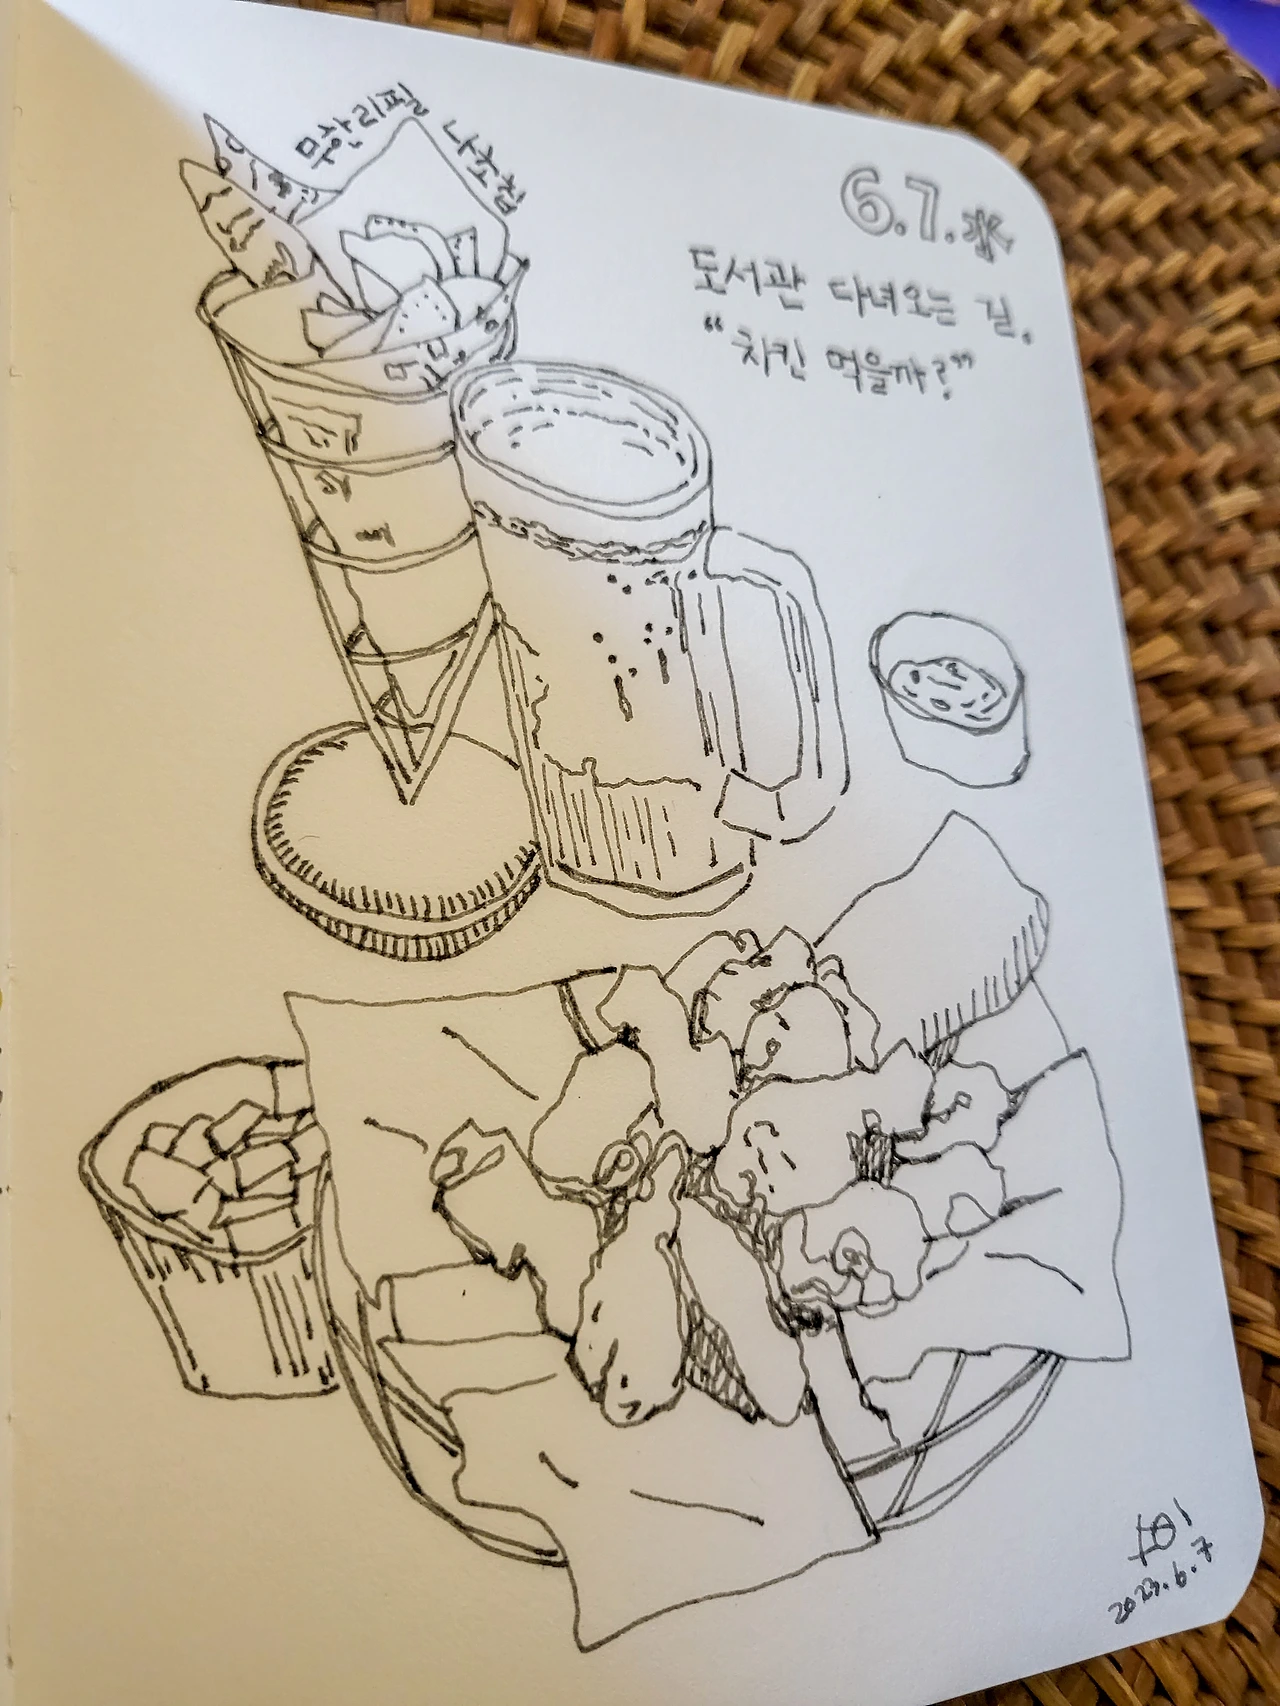 무한리필 나초칩
6.7.水
도서관 다녀오는 길.
“치킨 먹을까?”
2023.6.7